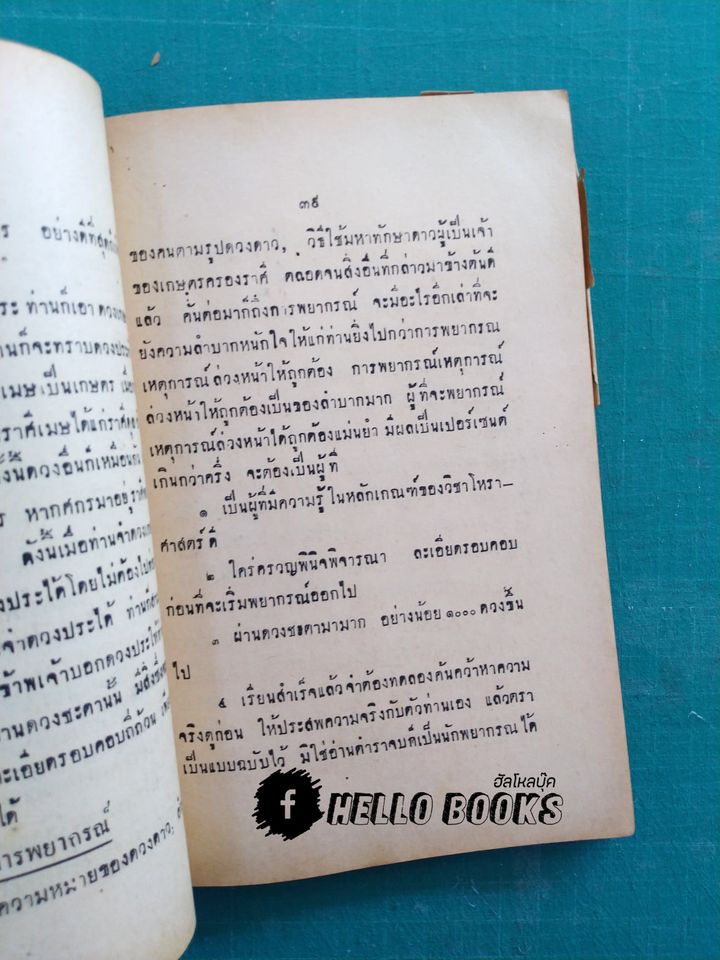 ร อย่างดีที่สุด
ระ ท่านก็เอา
านก็จะทราบดวง
เมษเป็นเกษตร
ราศีเมษได้แก่ราศี
งนี้ดวงอื่นก็เหมือน
ร หากศุกรมาอยู่
ดังนี้เมื่อท่านจำดวง
ประได้โดยไม่ต้อง
จำดวงประได้
ข้าพเจ้าบอกดวง
านดวงชะตานั้น
ะเอียดรอบคอบถี่ถ้วน
ได้
การพยากรณ์
ความหมายของดวงดาว,
๓๕
ของคนตามรูปดวงดาว, วิธีใช้มหาทักษาดาวผู้เป็นเจ้า
ของเกษตรครองราศี ตลอดจนสิ่งอื่นที่กล่าวมาข้างต้นดี
แล้ว คั่นต่อมาก็ถึงการพยากรณ์ จะมีอะไรอีกเล่าที่จะ
ยังความลำบากหนักใจให้แก่ท่านยิ่งไปกว่าการพยากรณ
เหตุการณ์ล่วงหน้าให้ถูกต้อง การพยากรณ์เหตุการณ์
ล่วงหน้าให้ถูกต้องเป็นของลำบากมาก ผู้ที่จะพยากรณ์
เหตุการณ์ล่วงหน้าได้ถูกต้องแม่นยำ มีผลเป็นเปอร์เซนต์
เกินกว่าครึ่ง จะต้องเป็นผู้ที่
๑ เป็นผู้ที่มีความรู้ในหลักเกณฑ์ของวิชาโหรา-
ศาสตร์ดี
๒ ใคร่ครวญพินิจพิจารณา ละเอียดรอบคอบ
ก่อนที่จะเริ่มพยากรณ์ออกไป
๓ ผ่านดวงชะตามามาก อย่างน้อย ๑๐๐๐ ดวงขึ้น
ไป
๔ เรียนสำเร็จแล้วจำต้องทดลองค้นคว้าหาความ
จริงดูก่อน ให้ประสพความจริงกับตัวท่านเอง แล้วตรา
เป็นแบบฉบับไว้ มิใช่อ่านตำราจบก็เป็นนักพยากรณได้
ฮัลโหลบุ๊ค
f HELLO BOOKS